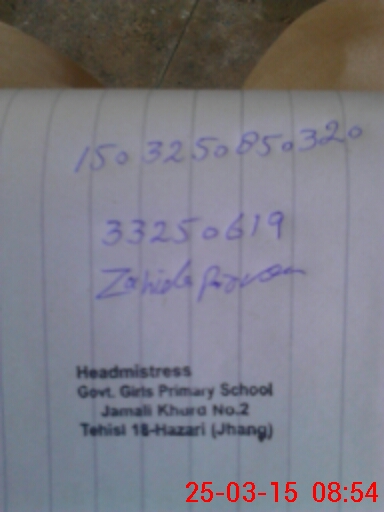 1503250850320
33250619
Zahida Parveen
Headmistress
Govt. Girls Primary School
Jamali Khurd No.2
Tehisl 18-Hazari (Jhang)
25-03-15 08:54